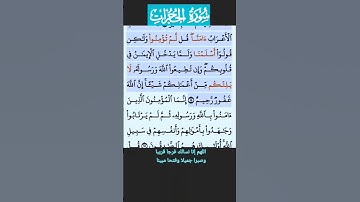 سُورَةُ الْحُجُرَاتِ
ٱلۡأَعۡرَابُ ءَامَنَّاۖ قُل لَّمۡ تُؤۡمِنُواْ وَلَٰكِن
قُولُوٓاْ أَسۡلَمۡنَا وَلَمَّا يَدۡخُلِ ٱلۡإِيمَٰنُ فِي
قُلُوبِكُمۡۖ وَإِن تُطِيعُواْ ٱللَّهَ وَرَسُولَهُۥ لَا
يَلِتۡكُم مِّنۡ أَعۡمَٰلِكُمۡ شَيۡـًٔاۚ إِنَّ ٱللَّهَ
غَفُورٞ رَّحِيمٌ ١٤ إِنَّمَا ٱلۡمُؤۡمِنُونَ ٱلَّذِينَ
ءَامَنُواْ بِٱللَّهِ وَرَسُولِهِۦ ثُمَّ لَمۡ يَرۡتَابُواْ
وَجَٰهَدُواْ بِأَمۡوَٰلِهِمۡ وَأَنفُسِهِمۡ فِي سَبِيلِ
اللهم إنا نسألك فرجا قريبا
وصبرا جميلا وفتحا مبينا